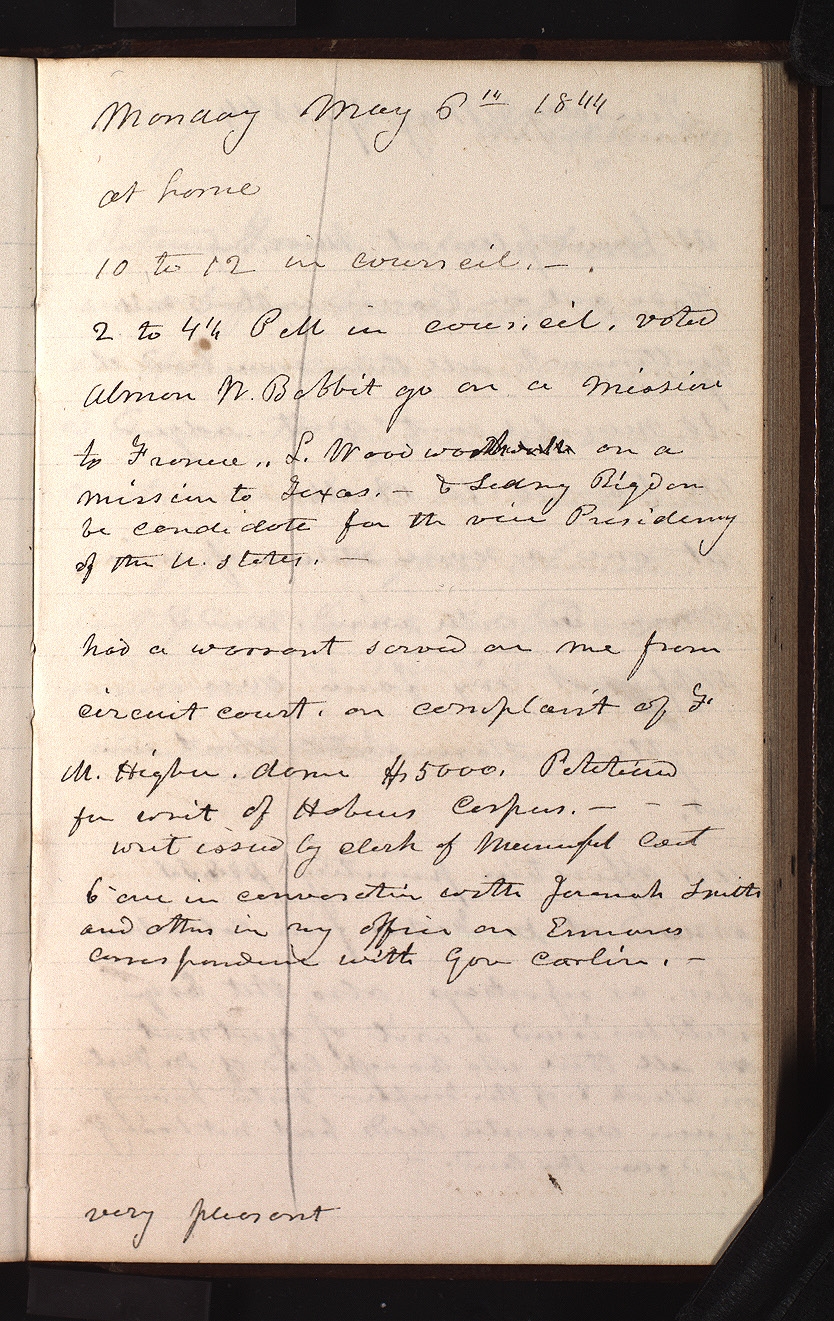 Monday May 6th 1844
at home
10 to 12 in council.—.
2 to 4¼ P M in council. voted
Almon W. Babbit go on a mission
to France,, L. Woodworth on a
mission to Texas.— & Sidny Rigdon
be candidate for th vice Presidency
of the U. States. —
had a warrant served on me from
circuit court. on complaint of F.
M. Higbee. dam $5000. Petitioned
for writ of Habeus Corpus. — – –
writ issued by clerk of Municipl Cout
6 eve in conversatin with Jeremiah Smith
and others in my office on Emmas
correspondence with Gov Carlin. —
very pleasant